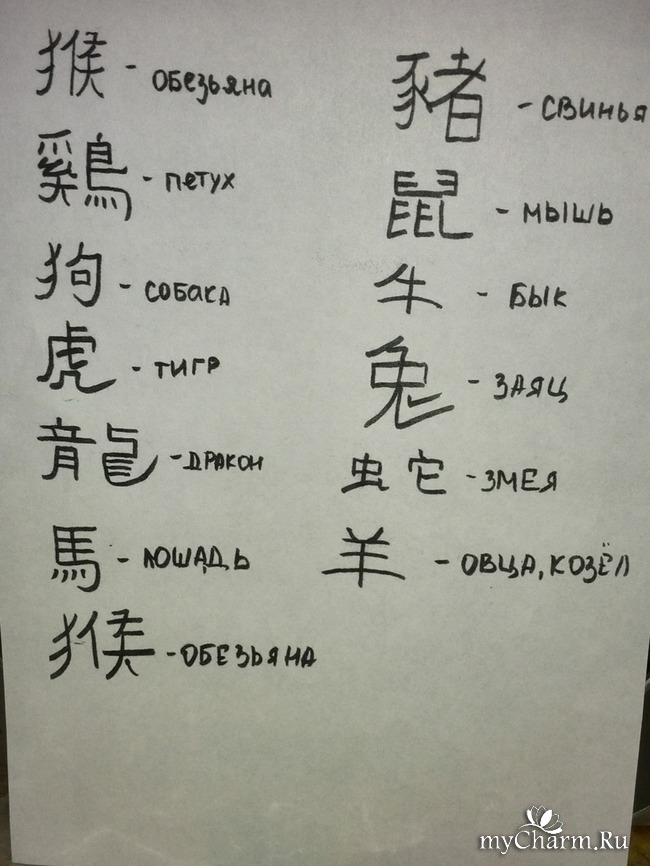 猴 - обезьяна
鷄 - петух
狗 - собака
虎 - тигр
龍 - ДРАКОН
馬 - ЛОШАДЬ
猴 - ОБЕЗЬЯНА
豬 - СВИНЬЯ
鼠 - МЫШЬ
牛 - БЫК
兔 - ЗАЯЦ
虫它 - ЗМЕЯ
羊 - ОВЦА, КОЗЁЛ
myCharm.Ru